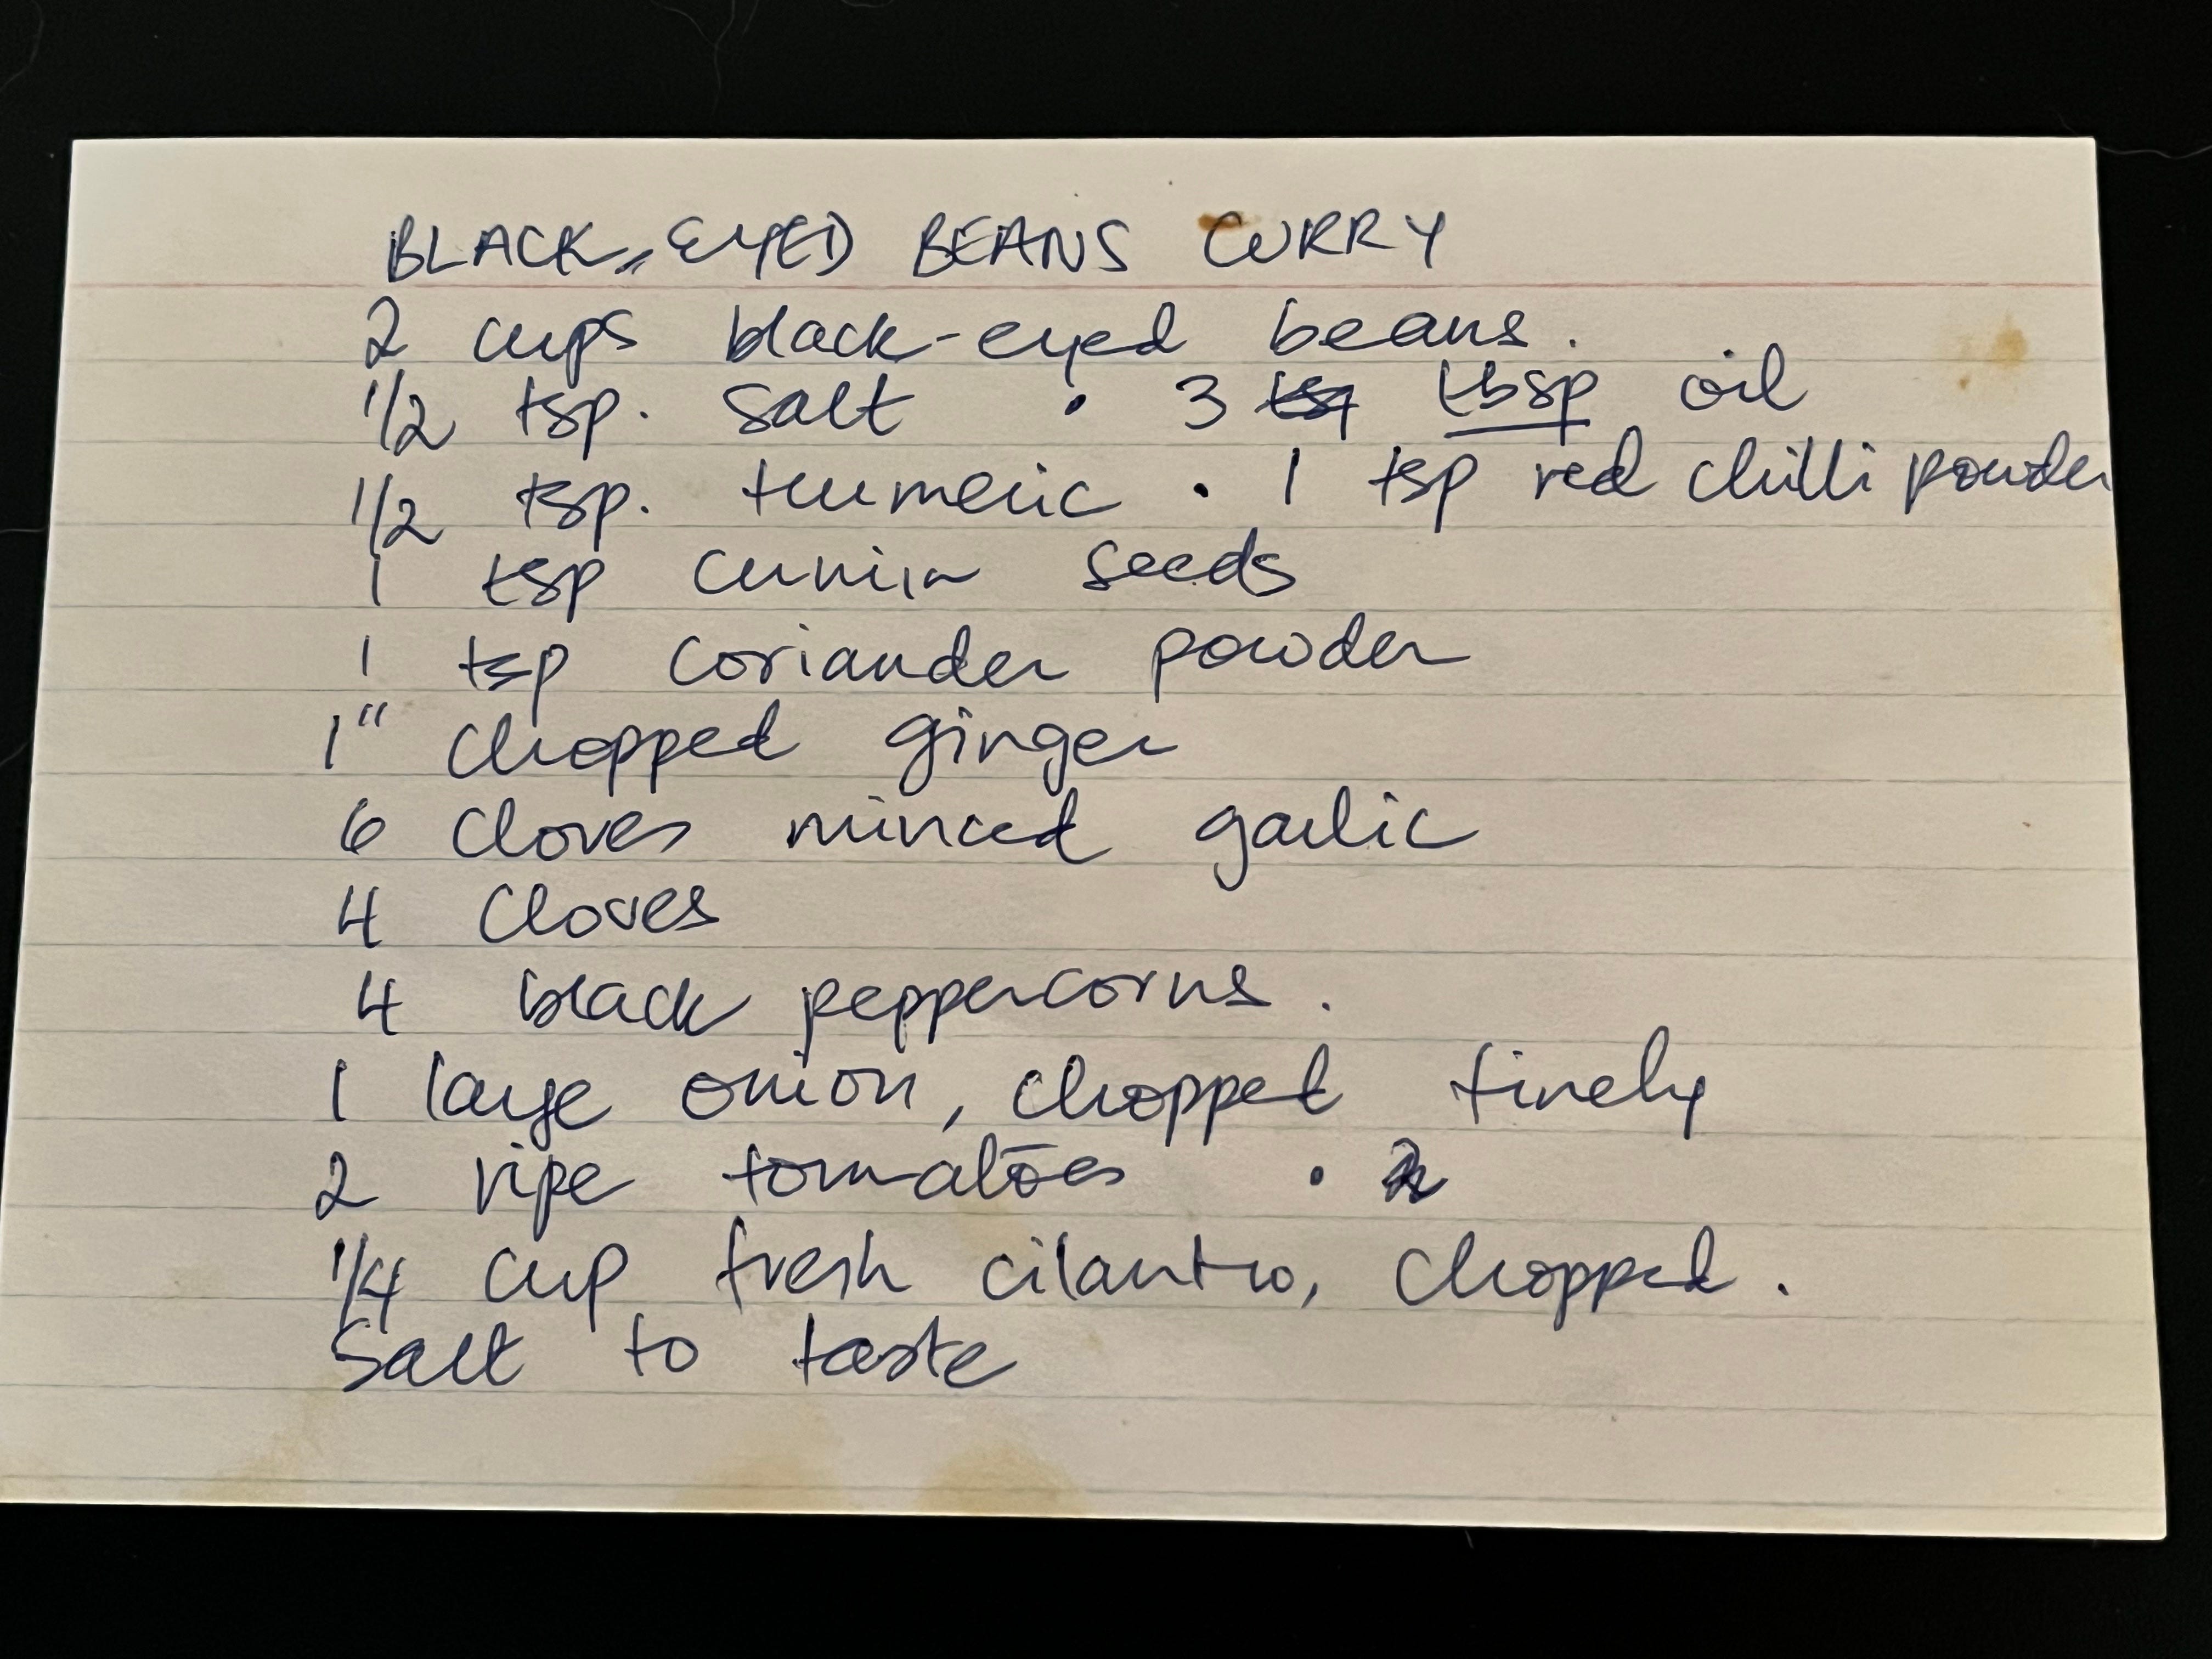 BLACK-EYED BEANS CURRY
2 cups black-eyed beans.
1/2 tsp. salt • 3 tbsp oil
1/2 tsp. turmeric • 1 tsp red chilli powder
1 tsp cumin seeds
1 tsp coriander powder
1" chopped ginger
6 cloves minced garlic
4 cloves
4 black peppercorns.
1 large onion, chopped finely
2 ripe tomatoes •
1/4 cup fresh cilantro, chopped.
Salt to taste